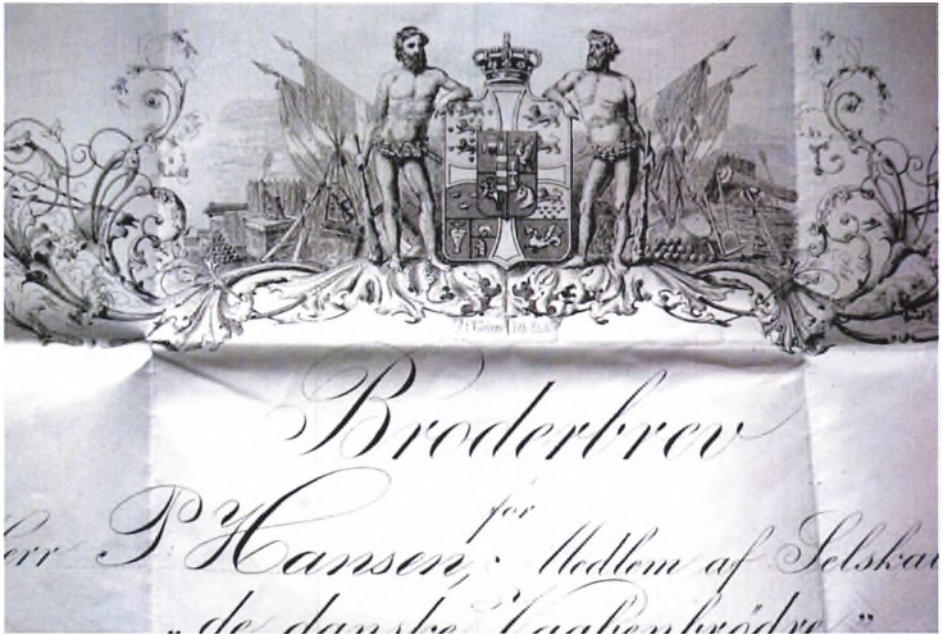 Broderbrev
for
Herr P. Hansen, Medlem af Selskab
"de danske Vaabenbrödre"